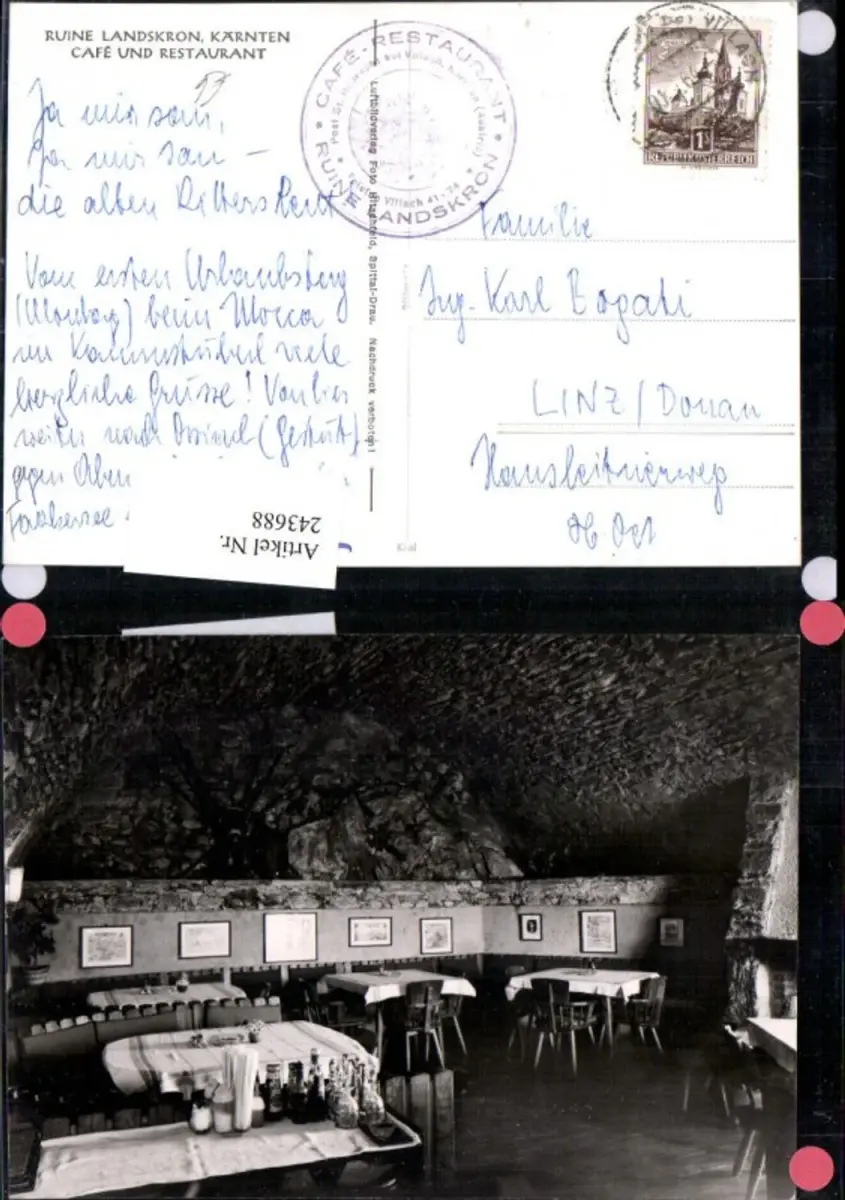 RUINE LANDSKRON, KÄRNTEN
CAFÉ UND RESTAURANT
Ja mir san,
Ja mir san —
die alten Rittersleut
Vom ersten Urlaubstag
(Montag) beim Mocca
im Kaminstüberl viele
herzliche Grüsse! Von hier
weiter nach Ossiach (Gestüt)
gegen Aben
Faakersee.
CAFÉ-RESTAURANT
RUINE LANDSKRON
Telefon Villach 41-74
Luftbildverlag Foto Hirschfeld, Spittal-Drau. Nachdruck verboten!
1 S
REPUBLIK ÖSTERREICH
Familie
Ing. Karl Bogati
LINZ/Donau
Hausleitnerweg
Artikel Nr.
243688